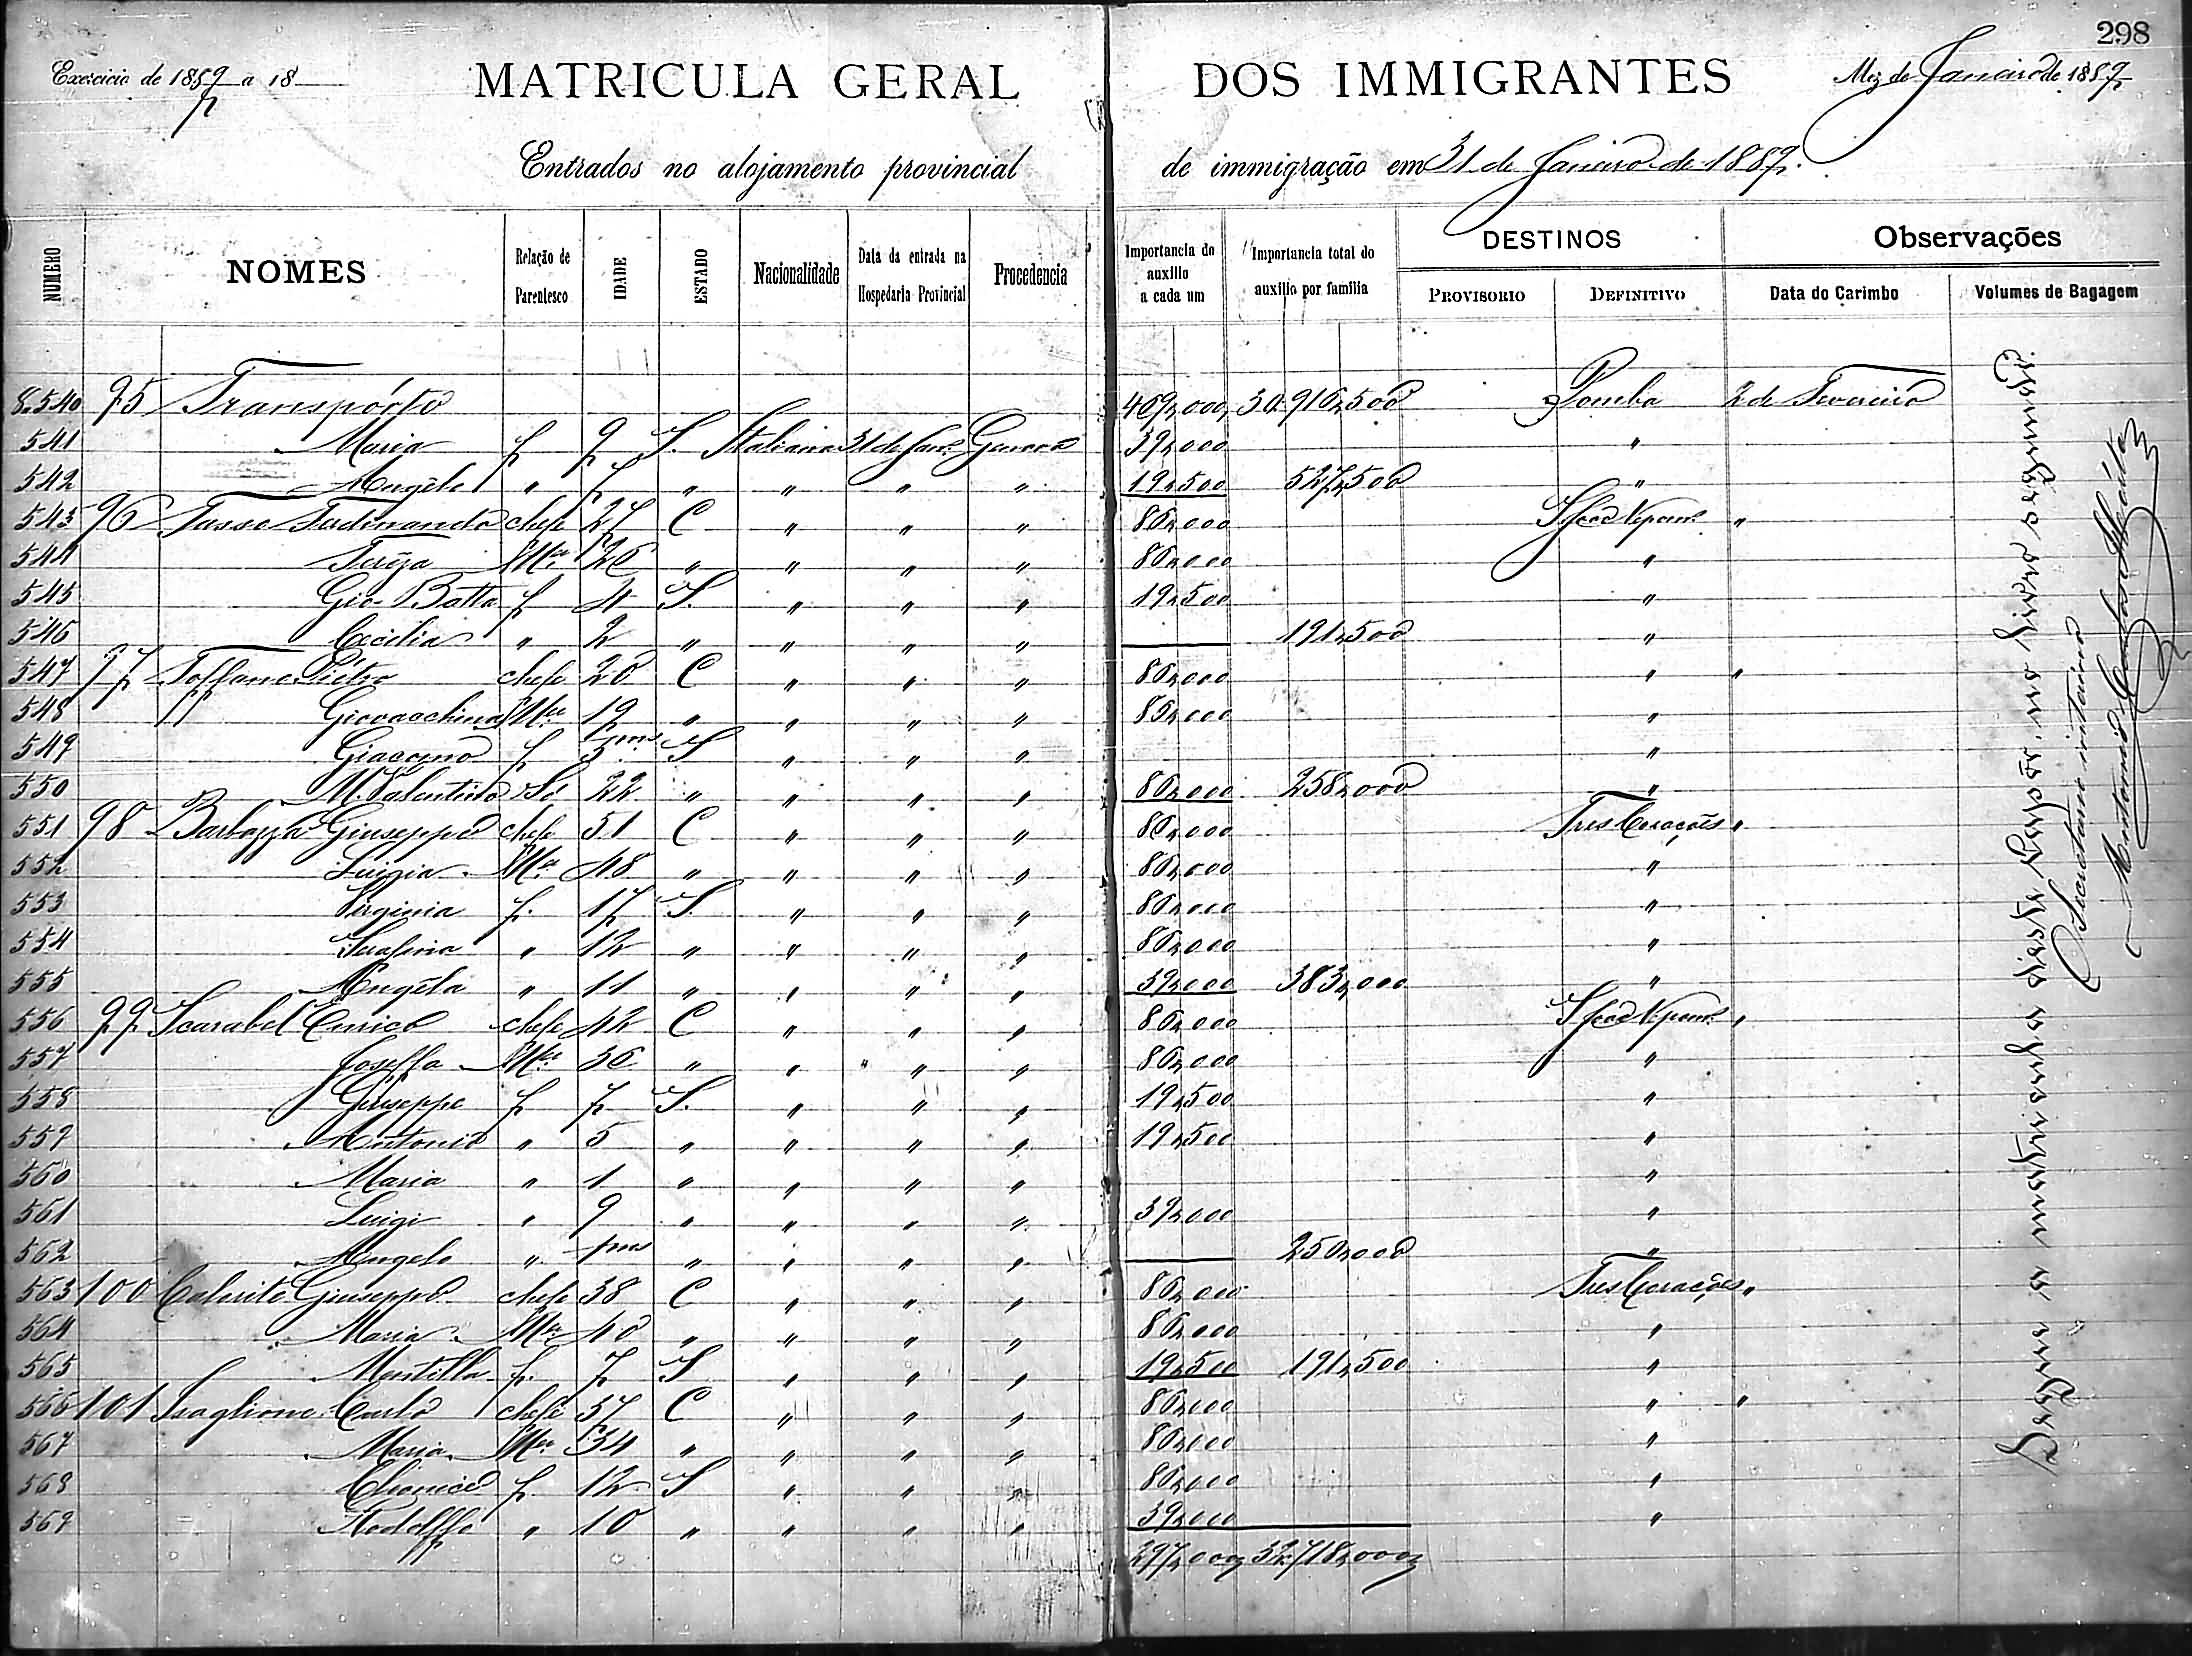 298
Exercicio de 1889 a 18
MATRICULA GERAL DOS IMMIGRANTES
Mez de Janeiro de 1889
Entrados no alojamento provincial de immigração em 31 de Janeiro de 1889.
NUMERO NOMES Relação de Parentesco IDADE ESTADO Nacionalidade Data da entrada na Hospedaria Provincial Procedencia Importancia do auxilio a cada um Importancia total do auxilio por familia DESTINOS PROVISORIO DEFINITIVO Observações Data do Carimbo Volumes de Bagagem
8.540 95 Transpórto 409,000 30.910,500 Pomba 2 de Fevereiro
541 Maria f 9 S. Italiana 31 de Janº Genova 39,000 "
542 Angelo " 7 " " " " 19,500 527,500 "
543 96 Tasso Ferdinando chefe 27 C " " " 86,000 "
544 Tereza Mer 26 " " " " 86,000 "
545 Gio-Batta f 4 S. " " " 19,500 "
546 Cecilia " 2 " " " " 191,500 "
547 97 Toffane Pietro chefe 20 C " " " 86,000 " "
548 Mer 19 " " " " 86,000 "
549 Giacomo f S " " " "
550 M. Valentino 22 " " " " 86,000 258,000 "
551 98 Barbazza Giuseppe chefe 51 C " " " 86,000 Tres Corações "
552 Luigia Mer 48 " " " " 86,000 "
553 Virginia f. 17 S. " " " 86,000 "
554 Serafina " 12 " " " " 86,000 "
555 Angela " 11 " " " " 39,000 383,000 "
556 99 Scarabel Enrico chefe 42 C " " " 86,000 "
557 Mer 36 " " " " 86,000 "
558 Giuseppe f 7 S. " " " 19,500 "
559 Antonio " 5 " " " " 19,500 "
560 Maria " 1 " " " " "
561 Luigi " 9 " " " " 39,000 "
562 Angelo " " " " " 250,000 "
563 100 Giuseppe chefe 38 C " " " 86,000 Tres Corações "
564 Maria Mer 40 " " " " 86,000 "
565 f. 7 S " " " 19,500 191,500 "
566 101 Carlo chefe 37 C " " " 86,000 " "
567 Maria Mer 34 " " " " 86,000 "
568 f. 12 S " " " 86,000 "
569 Rodolffo " 10 " " " " 39,000 "
297,000 32.718,000
Segue a matricula d'este vapor, no livro seguinte.
O Secretario interino
Antonio